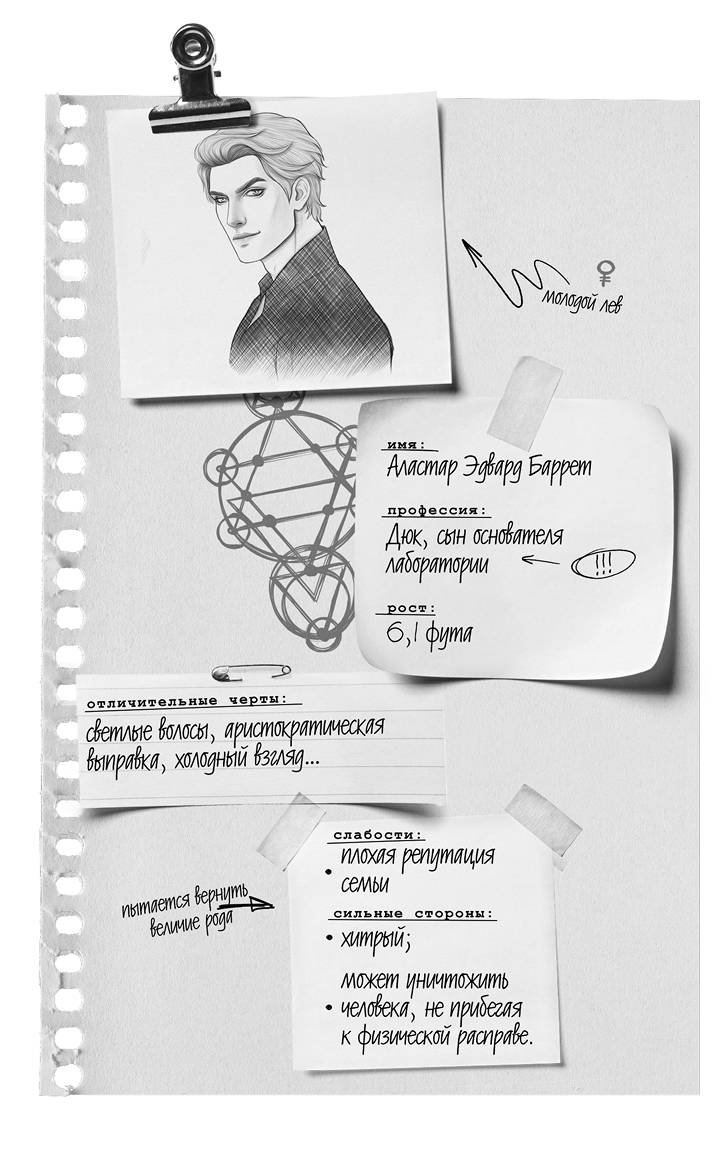 молодой лев
имя:
Аластар Эдвард Баррет
профессия:
Дюк, сын основателя
лаборатории
!!!
рост:
6,1 фута
отличительные черты:
светлые волосы, аристократическая
выправка, холодный взгляд...
слабости:
• плохая репутация
семьи
пытается вернуть
величие рода
сильные стороны:
• хитрый;
• может уничтожить
человека, не прибегая
к физической расправе.